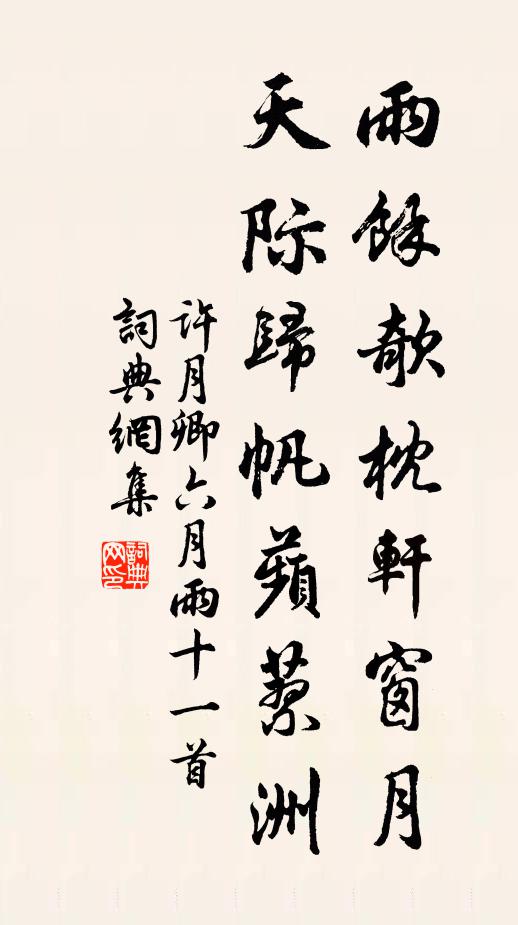 雨餘欹枕軒窗月
天際歸帆蘋蓼洲
許月卿六月雨十一首
詞典網集
詞典
网印